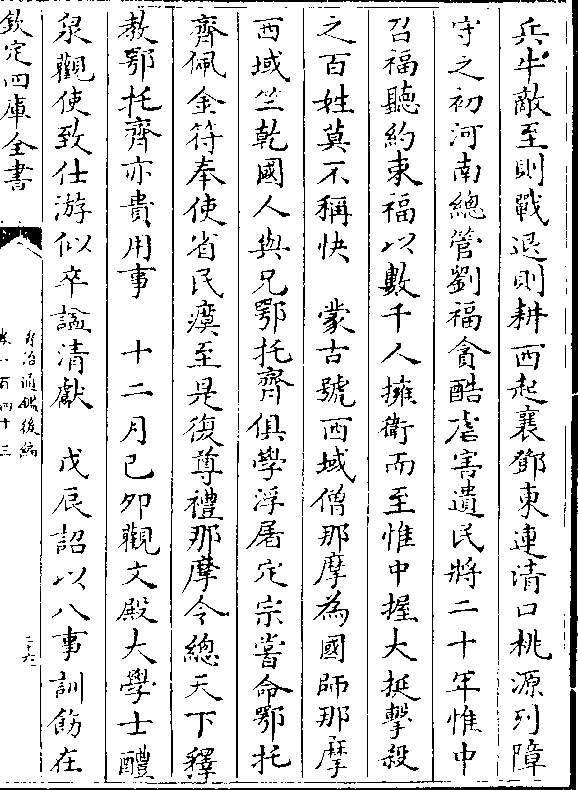 兵牛敵至則戰退則耕西起襄鄧東連清口桃源列障
守之初河南總管劉福貪酷虐害遺民將二十年惟中
召福聽約束福以數千人擁衛而至惟中握大挺擊殺
之百姓莫不稱快　蒙古號西域僧那摩為國師那摩
西域竺乾國人與兄鄂托齊俱學浮屠定宗嘗命鄂托
齊佩金符奉使省民瘼至是復尊禮那摩令總天下釋
教鄂托齊亦貴用事　十二月己卯觀文殿大學士醴
泉觀使致仕游似卒諡清獻　戊辰詔以八事訓飭在
欽定四庫全書
資治通鑑後編
卷一百四十三
二十六